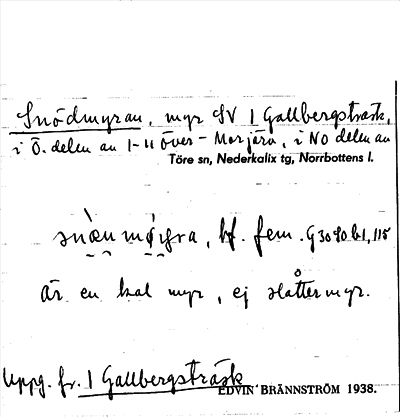 Snödmyran, myr SV I Gallbergsträsk,
i Ö. delen au 1-11 Över-Morjärv, i NO delen au
Töre sn, Nederkalix tg, Norrbottens l.
bf. fem.
är en kal myr, ej slåttermyr.
Uppg. fr. I Gallbergsträsk
EDVIN BRÄNNSTRÖM 1938.